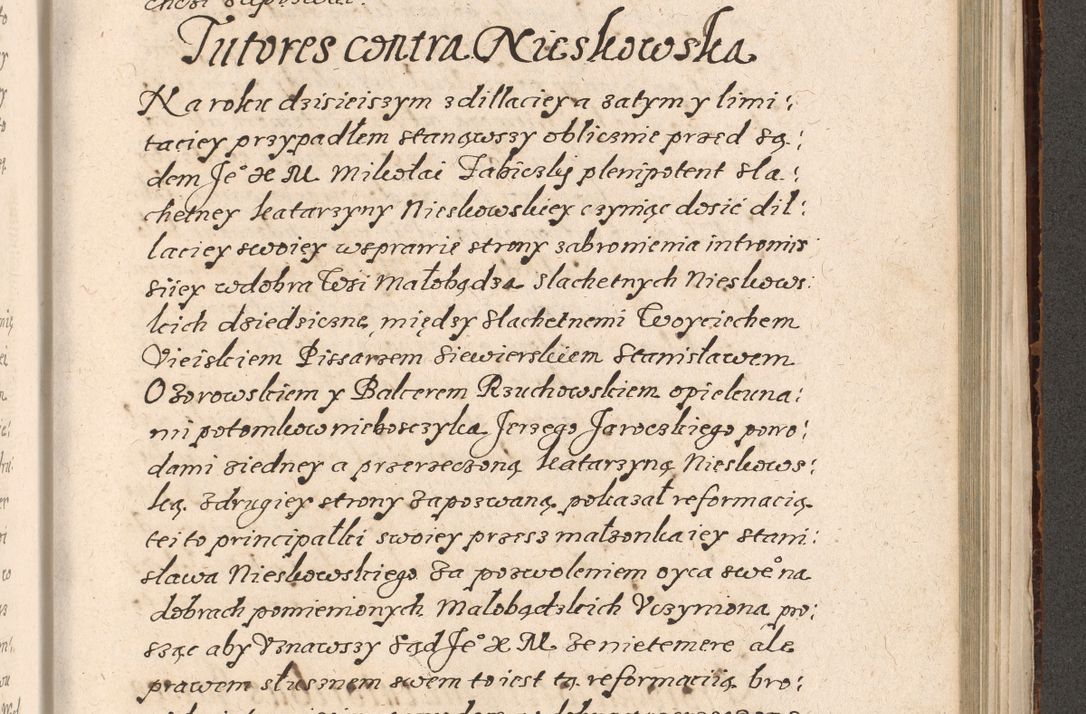 Tutores contra Nieskowska
Na roku dzisieiszym z dillaciey a zatym y limi:
taciey przypadłem stanąwszy oblicznie przed są:
dem Je° X M Mikołai Fabiczky plenipotent sla:
chetney Katarzyny Nieskowskiey czyniąc dosić dil:
laciey swoiey wsprawie strony zabronienia intromis
siiey wdobra Wsi Małobądza slachetnych Nieskows:
kich dziedziczne, między slachetnemi Woyciechem
Vieiskiem Pissarzem siewierskiem Stanisławem
Ozorowskiem y Balcerem Rzuchowskiem opiekuna:
mi potomkow nieboszczyka Jerzego Jaroczkiego powo:
dami ziedney a przerzeczoną Katarzyną Nieskows:
ką zdrugiey strony zapozwaną, pokazał reformacią
tei to principałki swoiey przesz małzonka iey Stani:
sława Nieskowskiego za pozwoleniem oyca swe° na
dobrach pomienionych Małobądzkich Vczymoną, pro:
sząc aby Vznawszy sąd Je° X M ze nietemere ale
prawem słusznem swem to iest tą reformaciią bro: